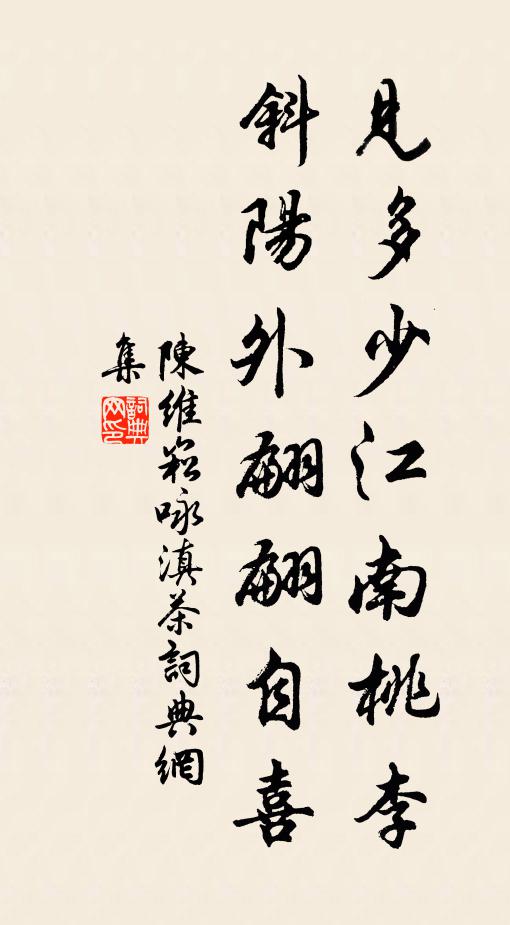 見多少江南桃李
斜陽外翩翩自喜
陳維崧咏滇茶詞典網
集
詞典
网印